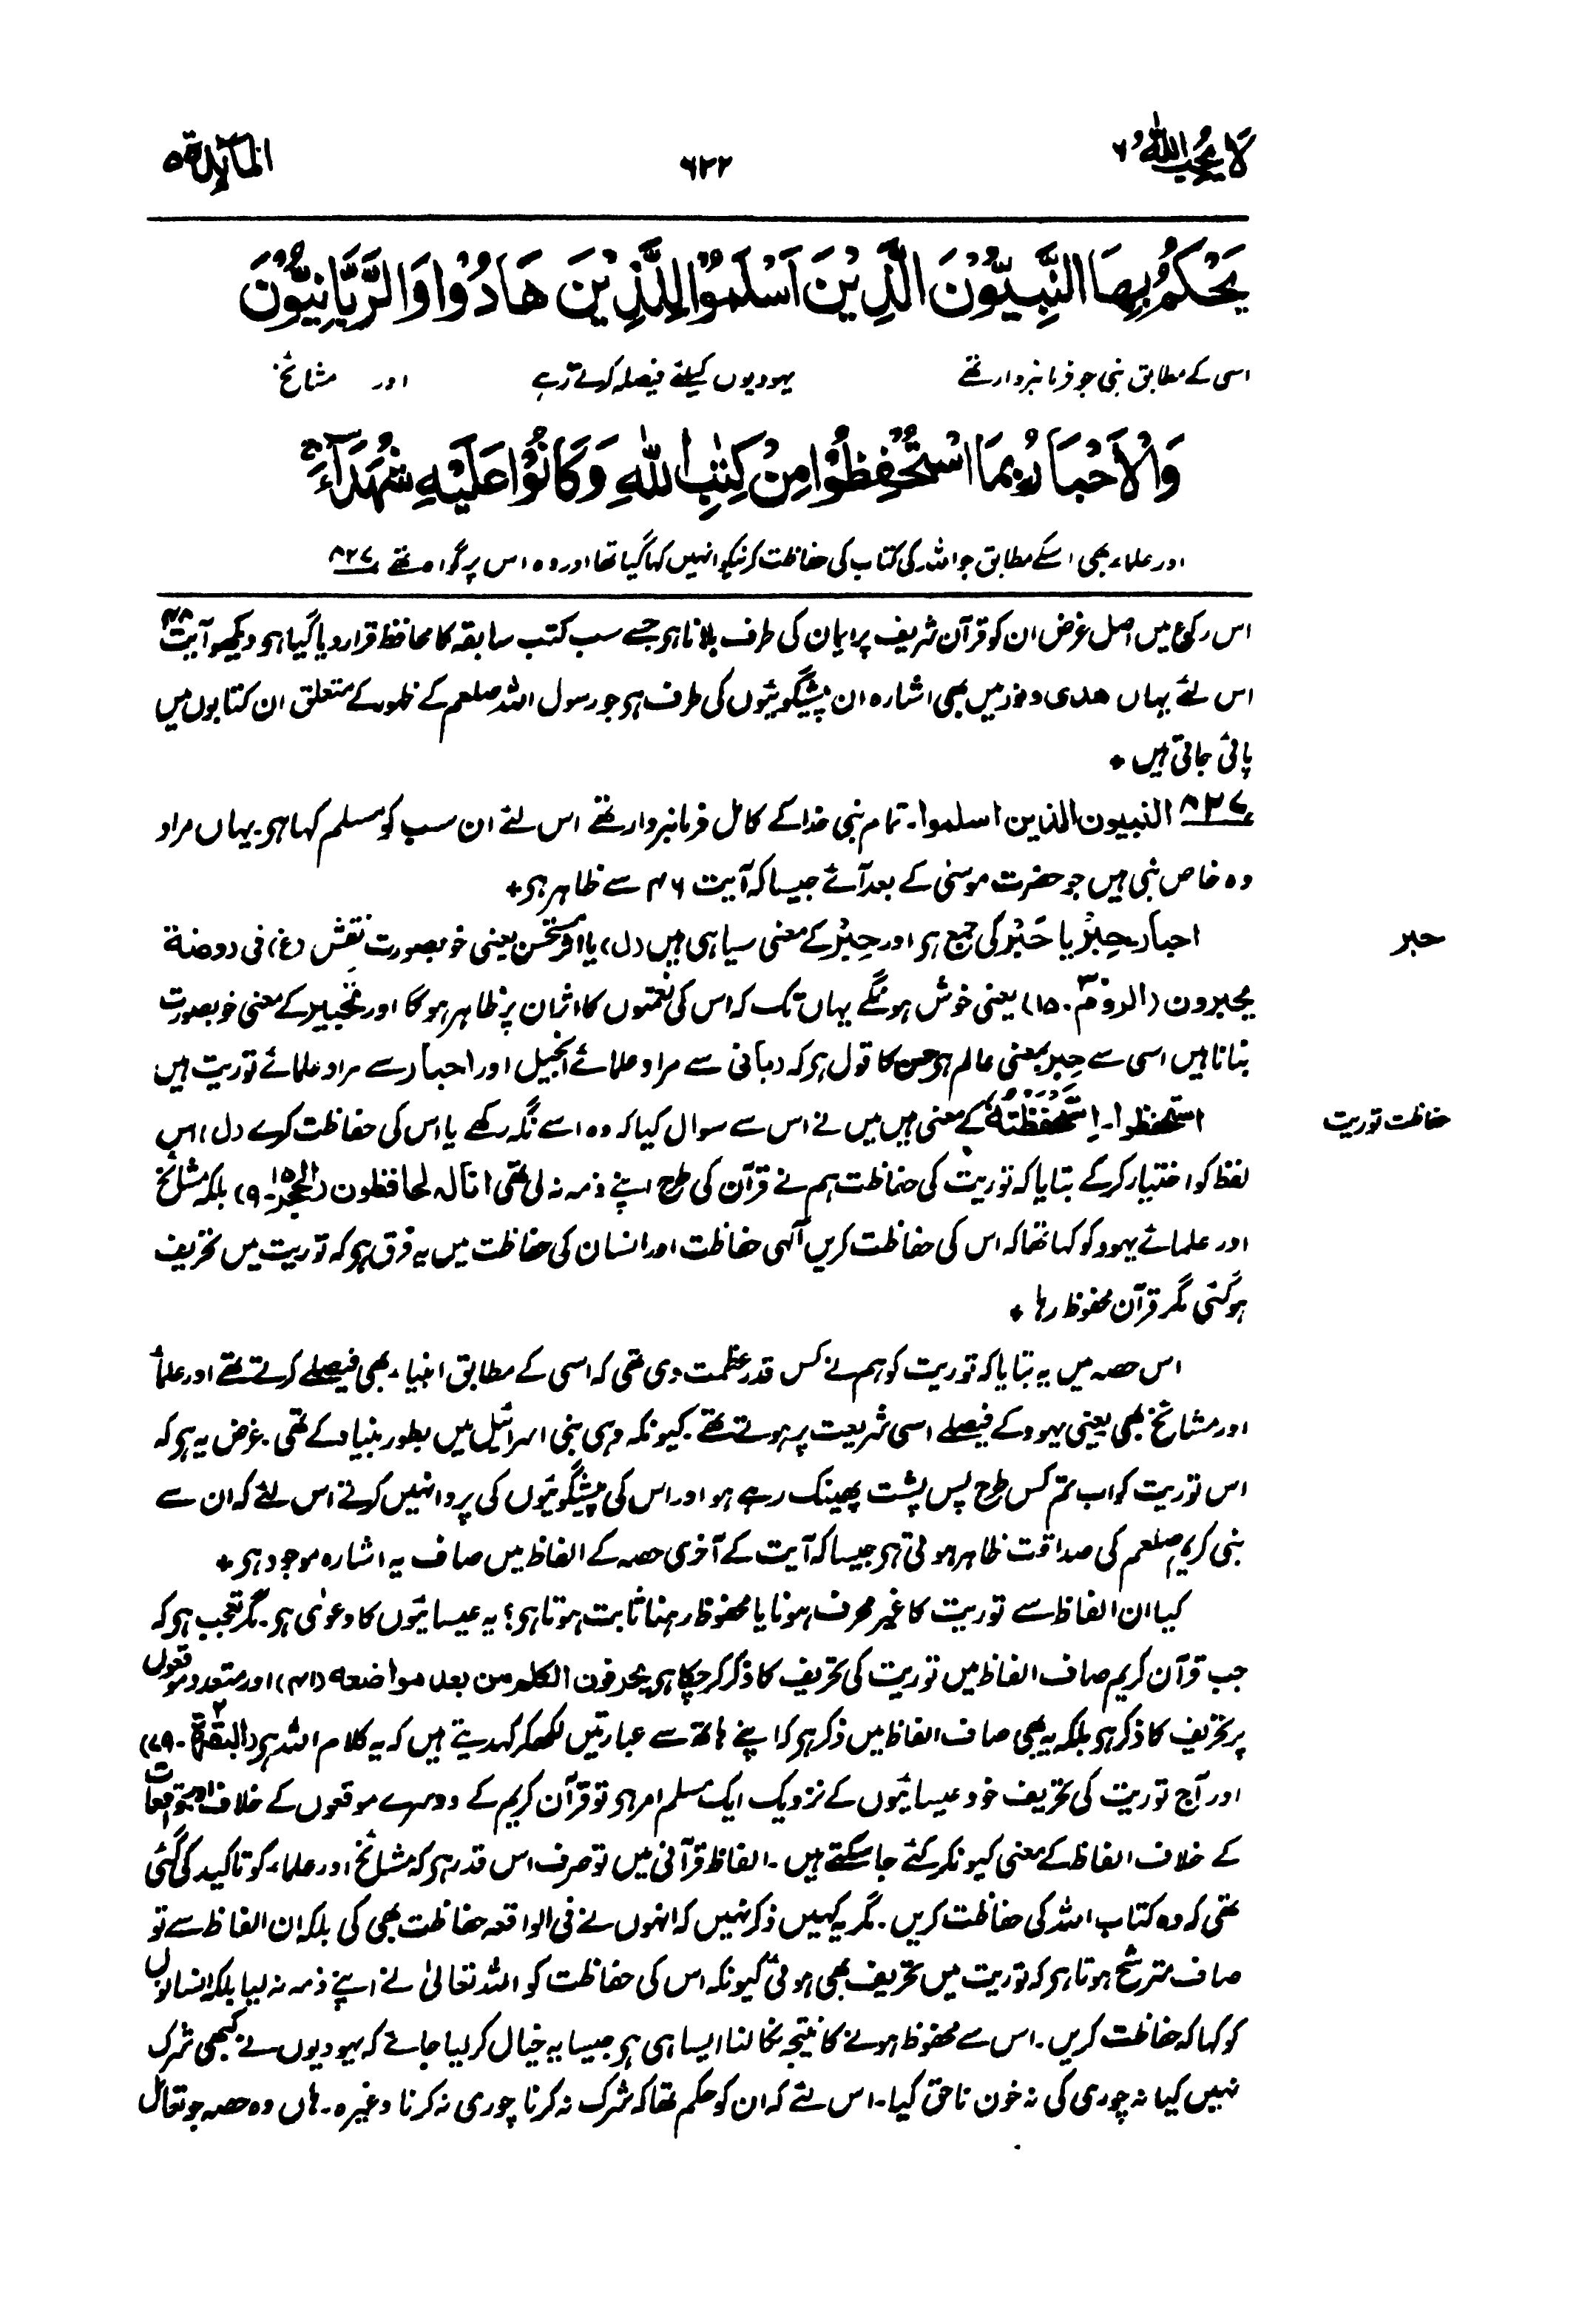 لَا يُحِبُّ اللّٰهُ ٦
٦٢٢
المآئدة ٥
يَحْكُمُ بِهَا النَّبِيُّوْنَ الَّذِيْنَ اَسْلَمُوْا لِلَّذِيْنَ هَادُوْا وَالرَّبَّانِيُّوْنَ
اسی کے مطابق نبی جو فرمانبردار تھے یہودیوں کیلئے فیصلہ کرتے رہے اور مشائخ
وَالْاَحْبَارُ بِمَا اسْتُحْفِظُوْا مِنْ كِتٰبِ اللّٰهِ وَكَانُوْا عَلَيْهِ شُهَدَآءَ ۚ
اور علماء بھی اسکے مطابق جو اللہ کی کتاب کی حفاظت کرنیکو انہیں کہا گیا تھا اور وہ اس پر گواہ تھے ٨٢٧
اس رکوع میں اصل غرض ان کو قرآن شریف پر ایمان کی طرف بلانا ہو جسے سب کتب سابقہ کا محافظ قرار دیا گیا ہو دیکھو آیت ٤٨
اس لئے یہاں ھدی و نور میں بھی اشارہ ان پیشگوئیوں کی طرف ہو جو رسول اللہ صلعم کے ظہور کے متعلق ان کتابوں میں
پائی جاتی ہیں ٭
٨٢٧ النبیون الذین اسلموا۔ تمام نبی خدا کے کامل فرمانبردار تھے اس لئے ان سب کو مسلم کہا ہو۔ یہاں مراد
وہ خاص نبی ہیں جو حضرت موسیٰ کے بعد آئے جیسا کہ آیت ٤٦ سے ظاہر ہو ٭
حبر
احبار۔ حِبْرٌ یا حَبْرٌ کی جمع ہو اور حِبْرٌ کے معنی سیاہی ہیں (ل) یا اثر مستحسن یعنی خوبصورت نقش (غ) فی روضة
یحبرون (الروم ٣٠-١٥) یعنی خوش ہونگے یہاں تک کہ اس کی نعمتوں کا اثر ان پر ظاہر ہوگا اور تحبیر کے معنی خوبصورت
بنانا ہیں اسی سے حِبر بمعنی عالم ہو حسن کا قول ہو کہ ربانی سے مراد علمائے انجیل اور احبار سے مراد علمائے توریت ہیں
حفاظت توریت
استحفظوا۔ اِسْتَحْفَظْتُهٗ کے معنی ہیں میں نے اس سے سوال کیا کہ وہ اسے نگہ رکھے یا اس کی حفاظت کرے (ل) اس
لفظ کو اختیار کرکے بتایا کہ توریت کی حفاظت ہم نے قرآن کی طرح اپنے ذمہ نہ لی تھی انا لہ لحافظون (الحجر ١٥-٩) بلکہ مشائخ
اور علمائے یہود کو کہا تھا کہ اس کی حفاظت کریں الٰہی حفاظت اور انسان کی حفاظت میں یہ فرق ہو کہ توریت میں تحریف
ہوگئی مگر قرآن محفوظ رہا ٭
اس حصہ میں یہ بتایا کہ توریت کو ہم نے کس قدر عظمت دی تھی کہ اسی کے مطابق انبیاء بھی فیصلے کرتے تھے اور علمأ
اور مشائخ بھی یعنی یہود کے فیصلے اسی شریعت پر ہوتے تھے۔ کیونکہ وہی بنی اسرائیل میں بطور بنیاد کے تھی۔ غرض یہ ہو کہ
اس توریت کو اب تم کس طرح پس پشت پھینک رہے ہو اور اس کی پیشگوئیوں کی پروا نہیں کرتے اس لئے کہ ان سے
نبی کریم صلعم کی صداقت ظاہر ہوتی ہو جیسا کہ آیت کے آخری حصہ کے الفاظ میں صاف یہ اشارہ موجود ہو ٭
کیا ان الفاظ سے توریت کا غیر محرف ہونا یا محفوظ رہنا ثابت ہوتا ہو؟ یہ عیسائیوں کا دعوٰی ہو۔ مگر تعجب ہو کہ
جب قرآن کریم صاف الفاظ میں توریت کی تحریف کا ذکر کرچکا ہو یحرفون الکلم من بعد مواضعه (٤١) اور متعدد موقعوں
پر تحریف کا ذکر ہو بلکہ یہ بھی صاف الفاظ میں ذکر ہو کہ اپنے ہاتھ سے عبارتیں لکھکر کہدیتے ہیں کہ یہ کلام اللہ ہو (البقرة ٢-٧٩)
اور آج توریت کی تحریف خود عیسائیوں کے نزدیک ایک مسلم امر ہو تو قرآن کریم کے دوسرے موقعوں کے خلاف اور واقعات
کے خلاف الفاظ کے معنی کیونکر کئے جا سکتے ہیں۔ الفاظ قرآنی میں تو صرف اس قدر ہو کہ مشائخ اور علماء کو تاکید کی گئی
تھی کہ وہ کتاب اللہ کی حفاظت کریں۔ مگر یہ کہیں ذکر نہیں کہ انہوں نے فی الواقعہ حفاظت بھی کی بلکہ ان الفاظ سے تو
صاف مترشح ہوتا ہو کہ توریت میں تحریف بھی ہوئی کیونکہ اس کی حفاظت کو اللہ تعالیٰ نے اپنے ذمہ نہ لیا بلکہ انسانوں
کو کہا کہ حفاظت کریں۔ اس سے محفوظ ہونے کا نتیجہ نکالنا ایسا ہی ہو جیسا یہ خیال کر لیا جائے کہ یہودیوں نے کبھی شرک
نہیں کیا نہ چوری کی نہ خون ناحق کیا۔ اس لئے کہ ان کو حکم تھا کہ شرک نہ کرنا چوری نہ کرنا وغیرہ۔ ہاں وہ حصہ جو تعامل